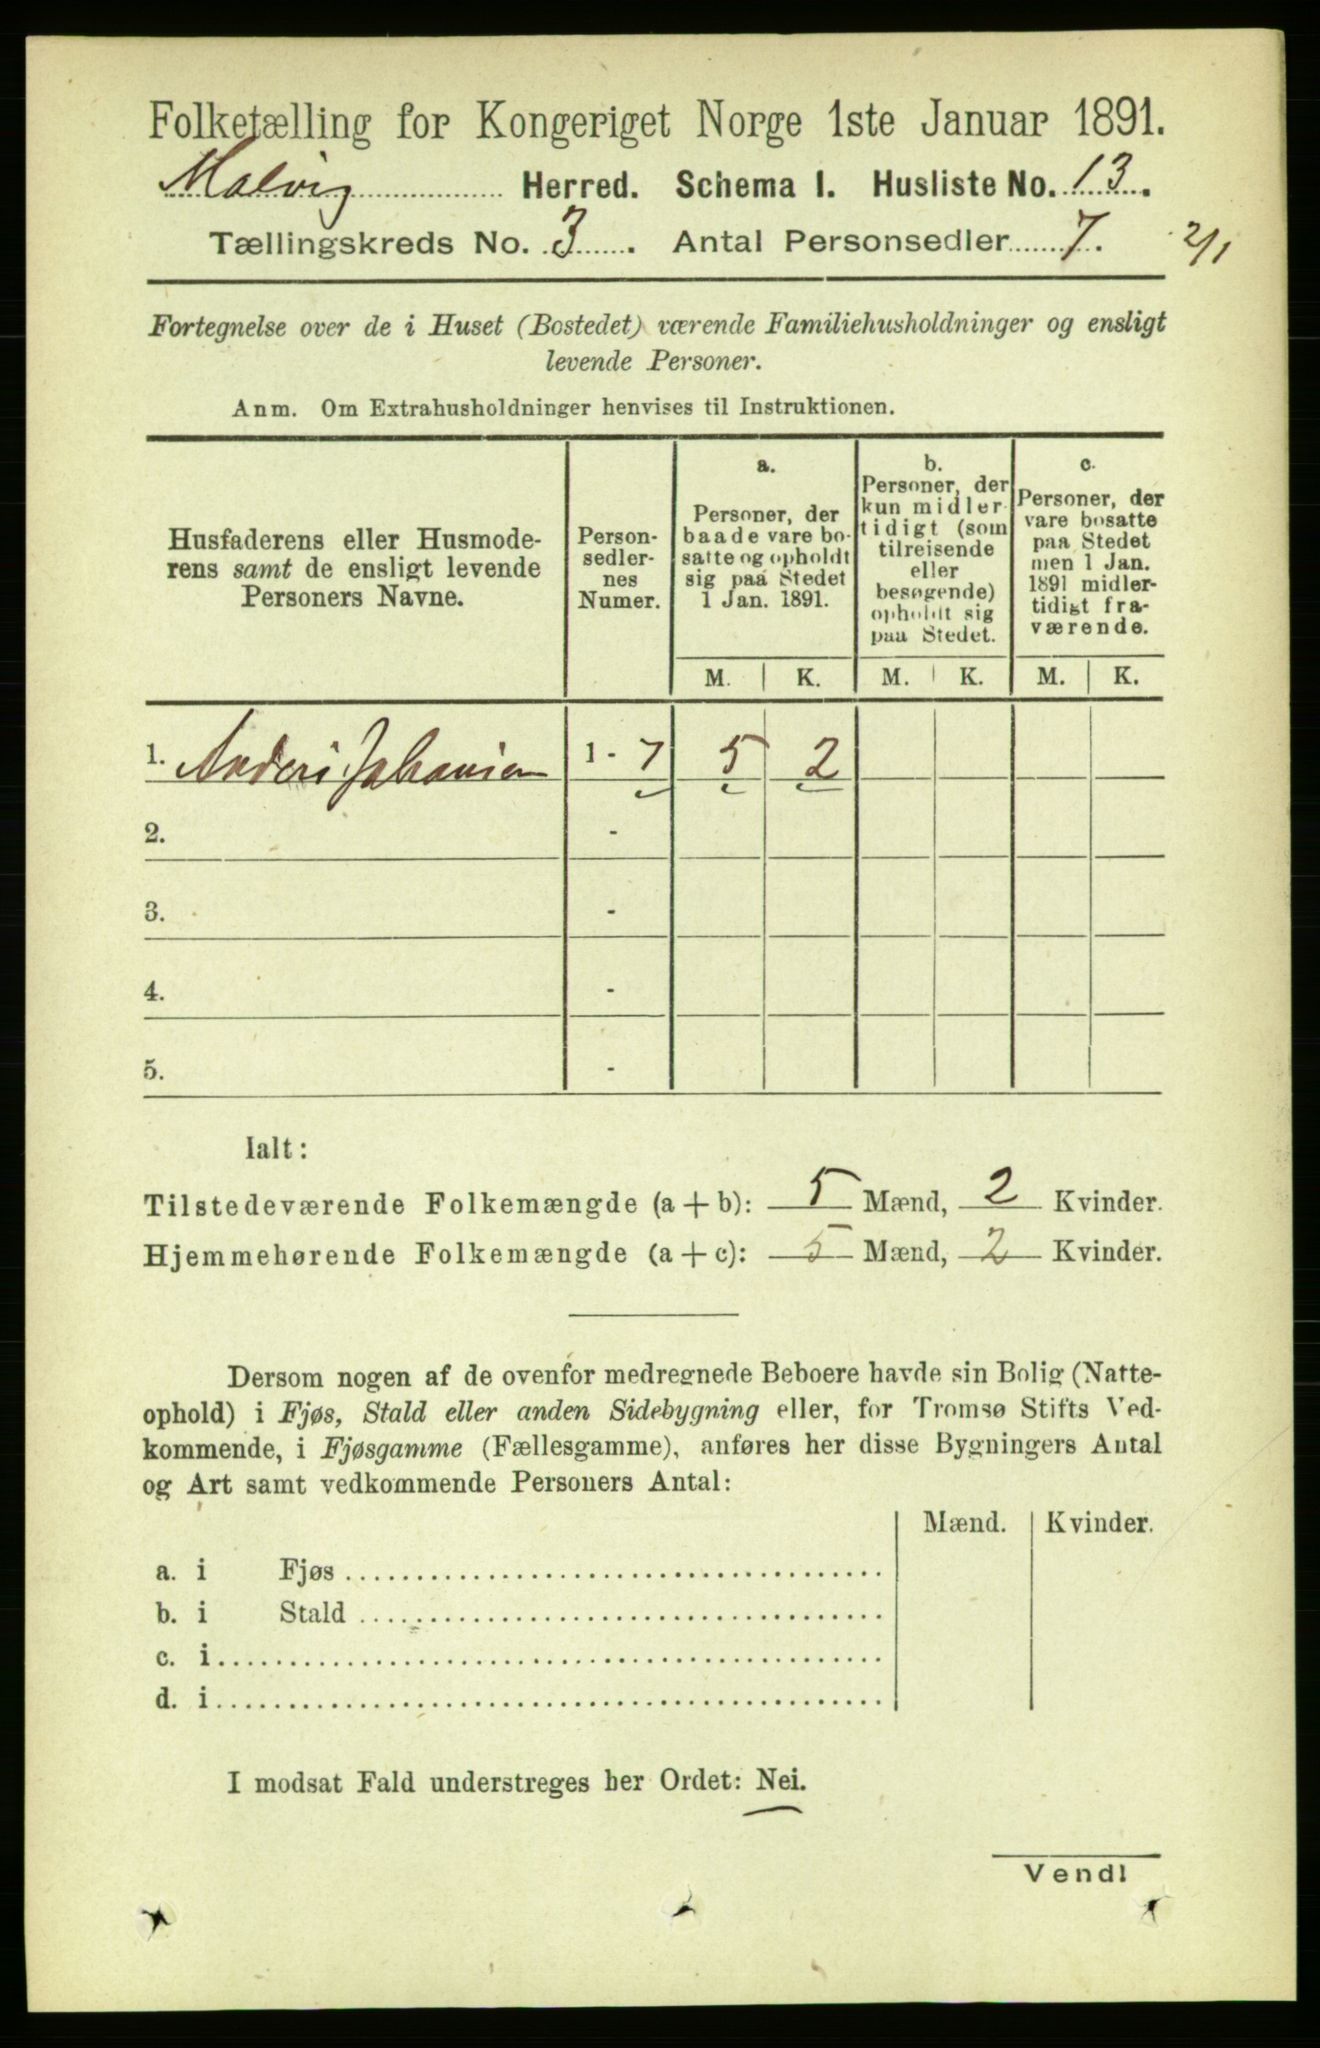 Folketælling for Kongeriget Norge 1ste Januar 1891.
Malvig Herred. Schema I. Husliste No. 13.
Tællingskreds No. 3. Antal Personsedler 7. 2/1
Fortegnelse over de i Huset (Bostedet) værende Familiehusholdninger og ensligt
levende Personer.
Anm. Om Extrahusholdninger henvises til Instruktionen.
Husfaderens eller Husmode-
rens samt de ensligt levende
Personers Navne.
Person-
sedler-
nes
Numer.
a.
Personer, der
baade vare bo-
satte og opholdt
sig paa Stedet
1 Jan. 1891.
b.
Personer, der
kun midler-
tidigt (som
tilreisende
eller
besøgende)
opholdt sig
paa Stedet.
c.
Personer, der
vare bosatte
paa Stedet
men 1 Jan.
1891 midler-
tidigt fra-
værende.
M. K. M. K. M. K.
1. Anders Johansen 1 - 7 5 2
2. -
3. -
4. -
5. -
Ialt:
Tilstedeværende Folkemængde (a + b): 5 Mænd, 2 Kvinder.
Hjemmehørende Folkemængde (a + c): 5 Mænd, 2 Kvinder.
Dersom nogen af de ovenfor medregnede Beboere havde sin Bolig (Natte-
ophold) i Fjøs, Stald eller anden Sidebygning eller, for Tromsø Stifts Ved-
kommende, i Fjøsgamme (Fællesgamme), anføres her disse Bygningers Antal
og Art samt vedkommende Personers Antal:
Mænd. Kvinder.
a. i Fjøs
b. i Stald
c. i
d. i
I modsat Fald understreges her Ordet: Nei.
Vend!